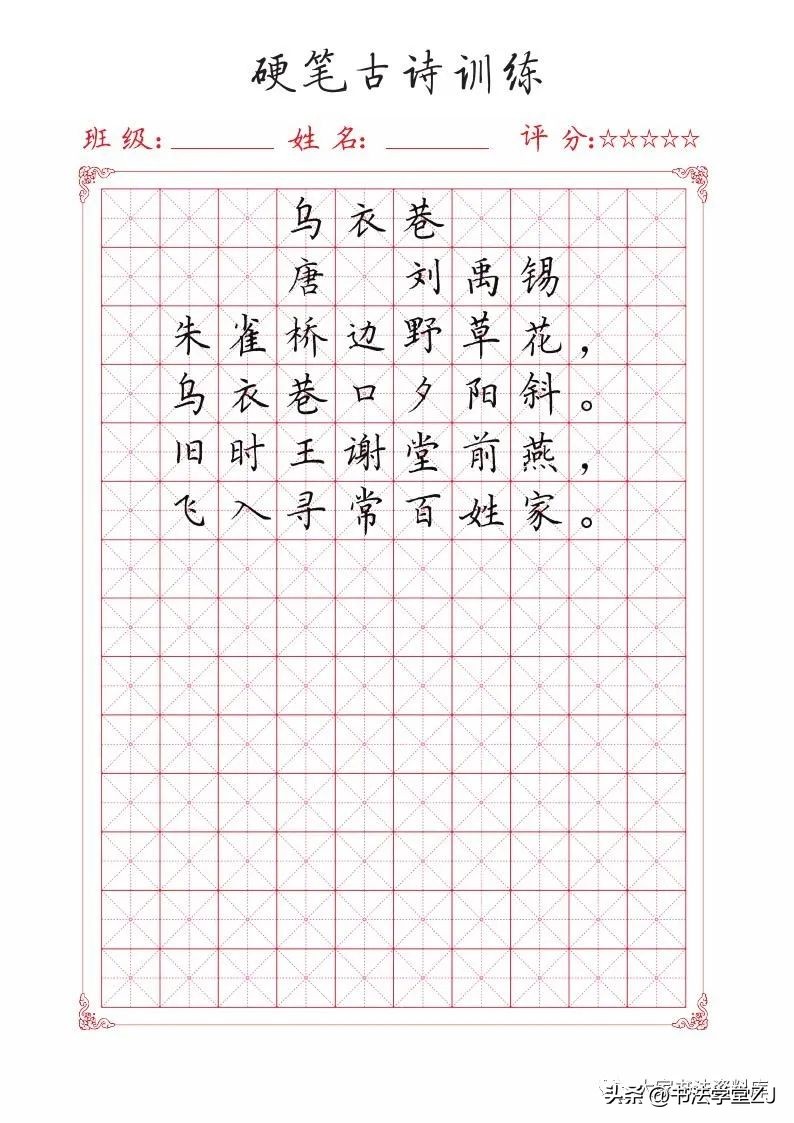 硬笔古诗训练
班级: 姓名: 评分:☆☆☆☆☆
乌衣巷
唐 刘禹锡
朱雀桥边野草花，
乌衣巷口夕阳斜。
旧时王谢堂前燕，
飞入寻常百姓家。
大家书法资料库
头条@书法学堂ZJ